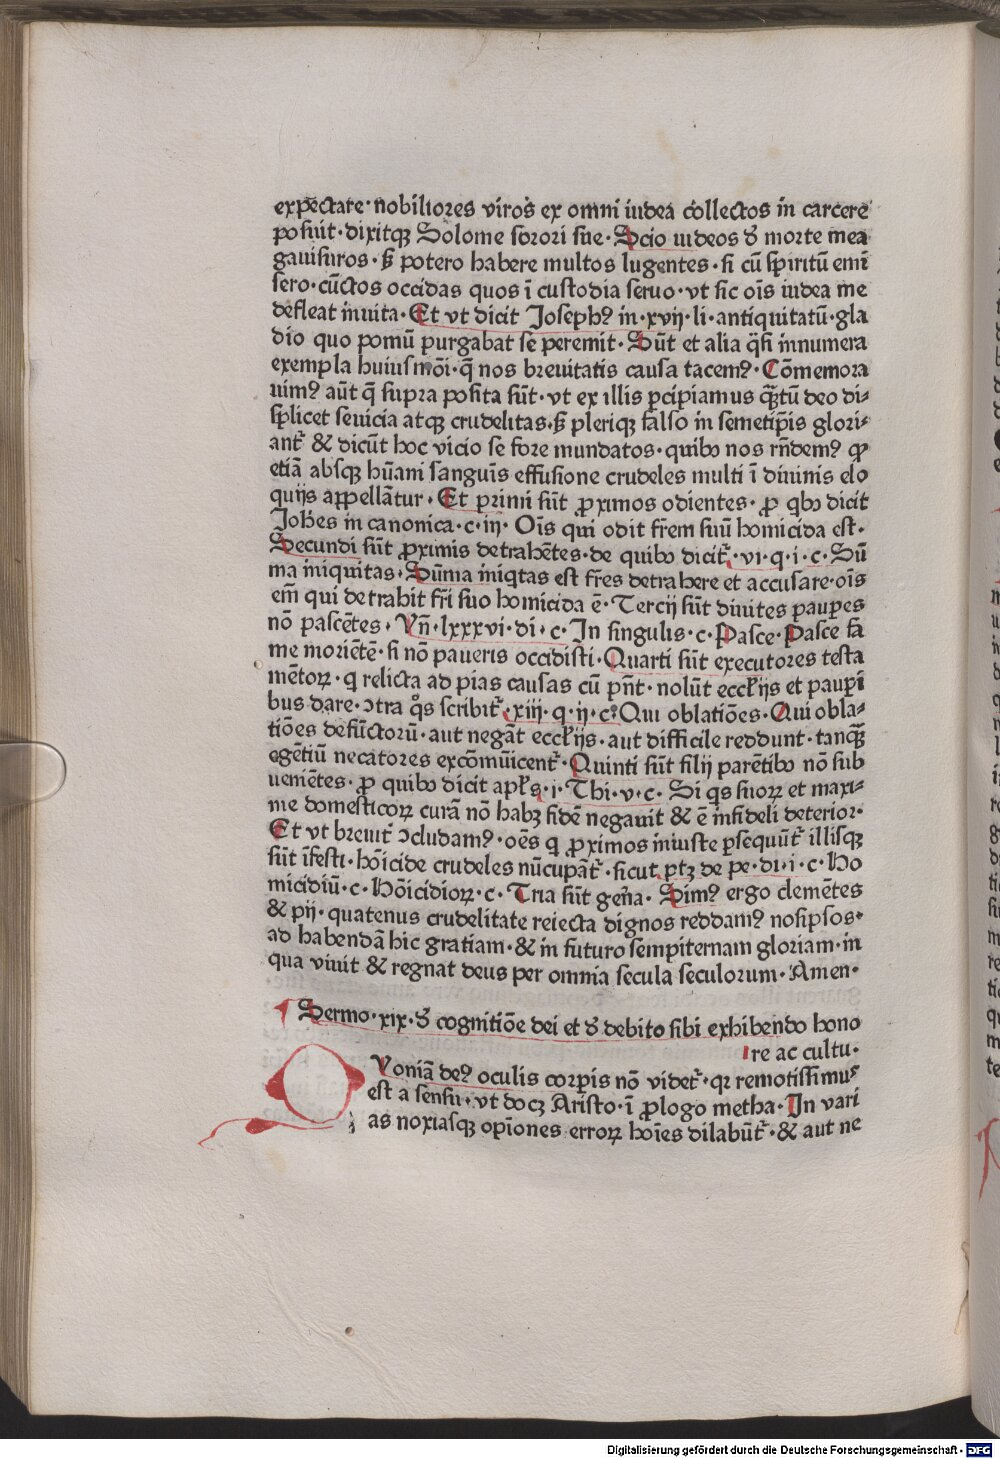 expectare·nobiliores viros ex omni iudea collectos in carcere
posuit·dixitqꝫ Solome sorori sue·Scio iudeos đ morte mea
gauisuros·sꝫ potero habere multos lugentes·si cū spiritū emi
sero·cūctos occidas quos ī custodia seruo·vt sic oīs iudea me
defleat inuita·Et vt dicit Josephꝰ in·xvij·li·antiquitatū·gla
dio quo pomū purgabat se peremit·Sūt et alia q̄si innumera
exempla huiusmōi·q̄ nos breuitatis causa tacemꝰ·Cōmemora
uimꝰ aūt q̄ supra posita sūt·vt ex illis ꝑcipiamus qꝫtū deo di-
splicet seuicia atqꝫ crudelitas·sꝫ pleriqꝫ falso in semetip̄is glori-
ant᷑ & dicūt hoc vicio se fore mundatos·quibꝰ nos rn̄demꝰ ꝙ
etiā absqꝫ hūani sanguīs effusione crudeles multi ī diuinis elo
quijs appellātur·Et primi sūt ꝓximos odientes·ꝓ qbꝰ dicit
Joh̄es in canonica·c·iij·Oīs qui odit fr̄em suū homicida est·
Secundi sūt ꝓximis detrahētes·de quibꝰ dicit᷑·vi·q·i·c·Sū
ma iniquitas·Sūma iniqtas est fr̄es detrahere et accusare·oīs
em̄ qui detrahit fr̄i suo homicida ē·Tercij sūt diuites pauꝑes
nō pascētes·Vn̄·lxxxvi·di·c·In singulis·c·Pasce·Pasce fa
me moriētē·si nō paueris occidisti·Quarti sūt executores testa
mētoꝝ·q relicta ad pias causas cū pn̄t·nolūt eccl̄ijs et pauꝑi
bus dare·ↄtra q̊s scribit᷑·xiij·q·ij·c·Qui oblatiōes·Qui obla-
tiōes defūctorū·aut negāt eccl̄ijs·aut difficile reddunt·tanqꝫ
egētiū necatores excōmūicent᷑·Quinti sūt filij parētibꝰ nō sub
ueniētes·ꝓ quibꝰ dicit apl̄s·i·Thi·v·c·Si qs suoꝝ et maxi-
me domesticoꝝ curā nō habꝫ fidē negauit & ē infideli deterior·
Et vt breuit᷑ ↄcludamꝰ·oēs q ꝓximos iniuste ꝑsequūt᷑ illisqꝫ
sūt īfesti·hōicide crudeles nūcupāt᷑·sicut ptꝫ de pe·di·i·c·Ho
micidiū·c·Hōicidioꝝ·c·Tria sūt gen̄a·Simꝰ ergo clemētes
& pij·quatenus crudelitate reiecta dignos reddamꝰ nosipsos·
ad habendā hic gratiam·& in futuro sempiternam gloriam·in
qua viuit & regnat deus per omnia secula seculorum·Amen·
Sermo·xix·đ cognitiōe dei et đ debito sibi exhibendo hono
re ac cultu·
QVoniā deꝰ oculis corꝑis nō videt᷑·qꝛ remotissimus
est a sensu·vt docꝫ Aristo·ī ꝓlogo metha·In vari
as noxiasqꝫ opīones erroꝝ hoīes dilabūt᷑·& aut ne
Digitalisierung gefördert durch die Deutsche Forschungsgemeinschaft · DFG